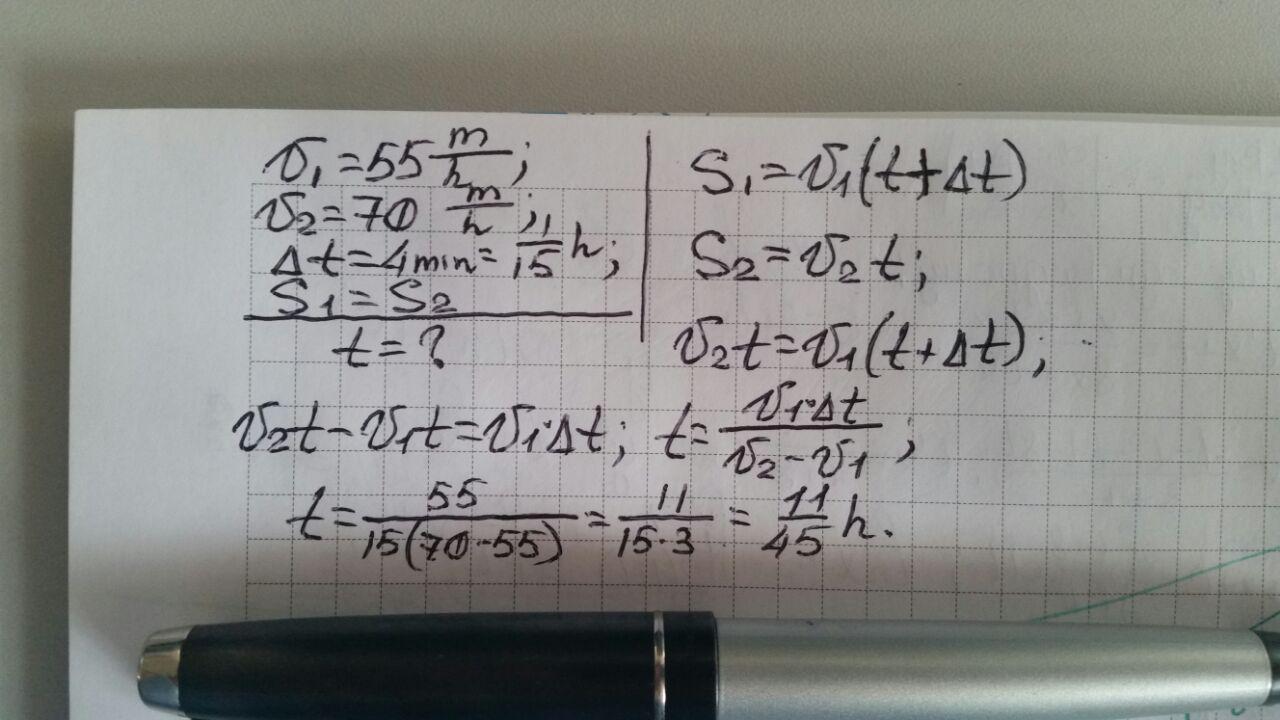 v₁ = 55 m/h;
v₂ = 70 m/h;
Δt = 4min = 1/15 h;
S₁ = S₂
t = ?
S₁ = v₁(t+Δt)
S₂ = v₂ t;
v₂t = v₁(t+Δt);
v₂t - v₁t = v₁·Δt; t = v₁·Δt/(v₂-v₁);
t = 55/(15(70-55)) = 11/(15·3) = 11/45 h.